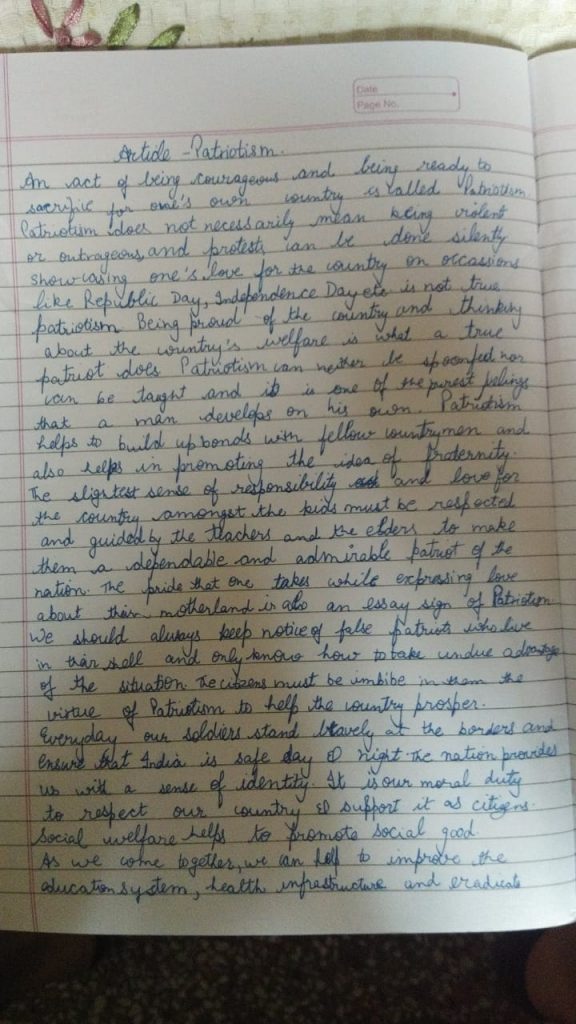 Date
Page No.
Article - Patriotism.
An act of being courageous and being ready to
sacrifice for one's own country is called Patriotism.
Patriotism does not necessarily mean being violent
or outrageous, and protests can be done silently
showcasing one's love for the country on occassions
like Republic Day, Independence Day etc is not true
patriotism Being proud of the country and thinking
about the country's welfare is what a true
patriot does Patriotism can neither be spoonfed nor
can be taught and it is one of the purest feelings
that a man develops on his own. Patriotism
helps to build up bonds with fellow countrymen and
also helps in promoting the idea of fraternity.
The slightest sense of responsibility and love for
the country amongst the kids must be respected
and guided by the teachers and the elders to make
them a dependable and admirable patriot of the
nation. The pride that one takes while expressing love
about their motherland is also an essay sign of Patriotism
We should always keep notice of false patriots who live
in their shall and only know how to take undue advantage
of the situation. The citizens must be imbibe in them the
virtue of Patriotism to help the country prosper.
Everyday our soldiers stand bravely at the borders and
ensure that India is safe day & night. The nation provides
us with a sense of identity. It is our moral duty
to respect our country & support it as citizens.
Social welfare helps to promote social good.
As we come together, we can help to improve the
education system, health infrastructure and eradicate